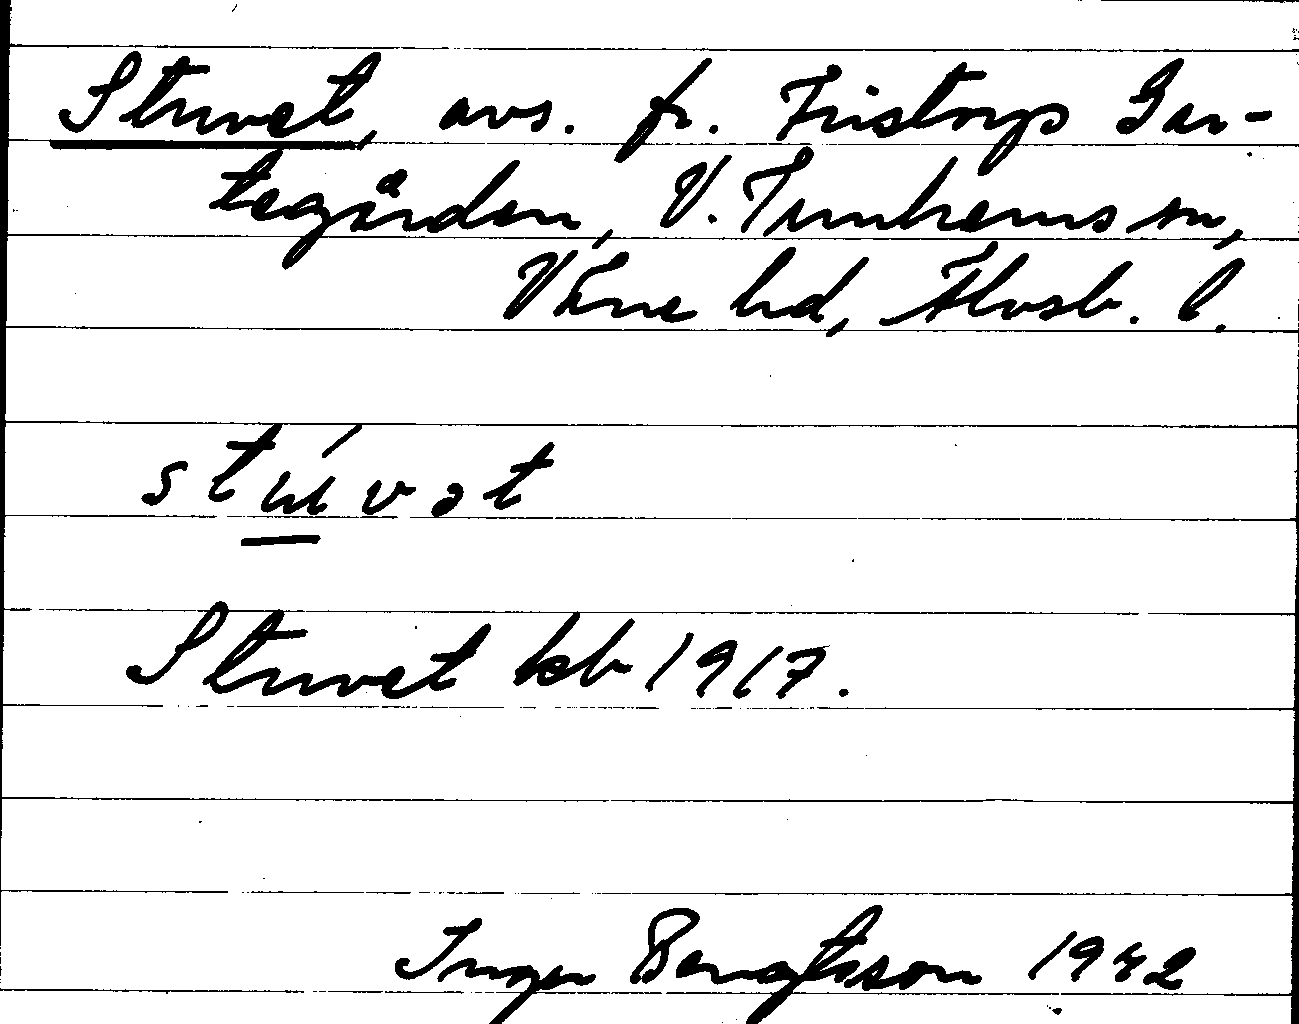 Stuvet, avs. fr. Fristorps Gär-
tegården, V. Tunhems sn,
Väne hd, Älvsb. l.
stúvət
Stuvet kb 1917.
Inger Bengtsson 1942